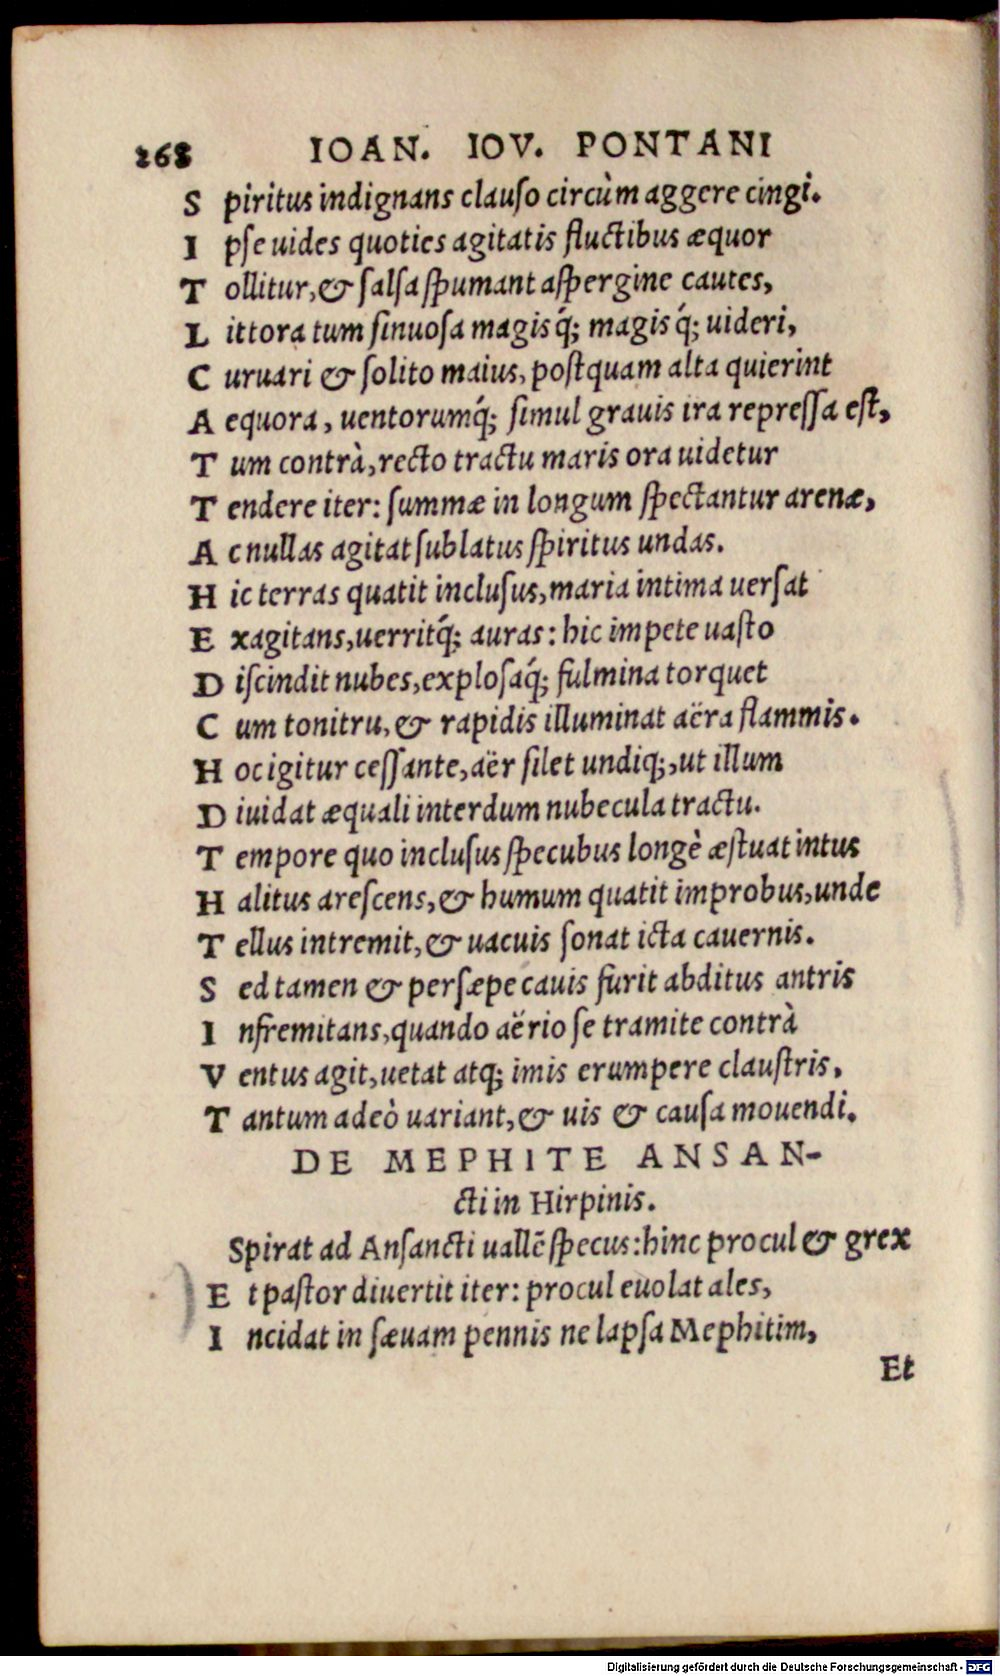 268 IOAN. IOV. PONTANI
S piritus indignans clauſo circùm aggere cingi.
I pſe uides quoties agitatis fluctibus æquor
T ollitur,& ſalſa ſpumant aſpergine cautes,
L ittora tum ſinuoſa magis q́; magis q́; uideri,
C uruari & ſolito maius, poſtquam alta quierint
A equora, uentorumq́; ſimul grauis ira repreſſa eſt,
T um contrà, recto tractu maris ora uidetur
T endere iter: ſummæ in longum ſpectantur arenæ,
A c nullas agitat ſublatus ſpiritus undas.
H ic terras quatit incluſus, maria intima uerſat
E xagitans, uerritq́; auras: hic impete uaſto
D iſcindit nubes, exploſaq́; fulmina torquet
C um tonitru, & rapidis illuminat aëra flammis.
H oc igitur ceſſante, aër ſilet undiq;, ut illum
D iuidat æquali interdum nubecula tractu.
T empore quo incluſus ſpecubus longè æſtuat intus
H alitus areſcens, & humum quatit improbus, unde
T ellus intremit, & uacuis ſonat icta cauernis.
S ed tamen & perſæpe cauis furit abditus antris
I nfremitans, quando aërio ſe tramite contrà
V entus agit, uetat atq; imis erumpere clauſtris,
T antum adeò uariant, & uis & cauſa mouendi.
DE MEPHITE ANSAN-
cti in Hirpinis.
Spirat ad Anſancti uallē ſpecus: hinc procul & grex
E t paſtor diuertit iter: procul euolat ales,
I ncidat in ſæuam pennis ne lapſa Mephitim,
Et
Digitalisierung gefördert durch die Deutsche Forschungsgemeinschaft - DFG